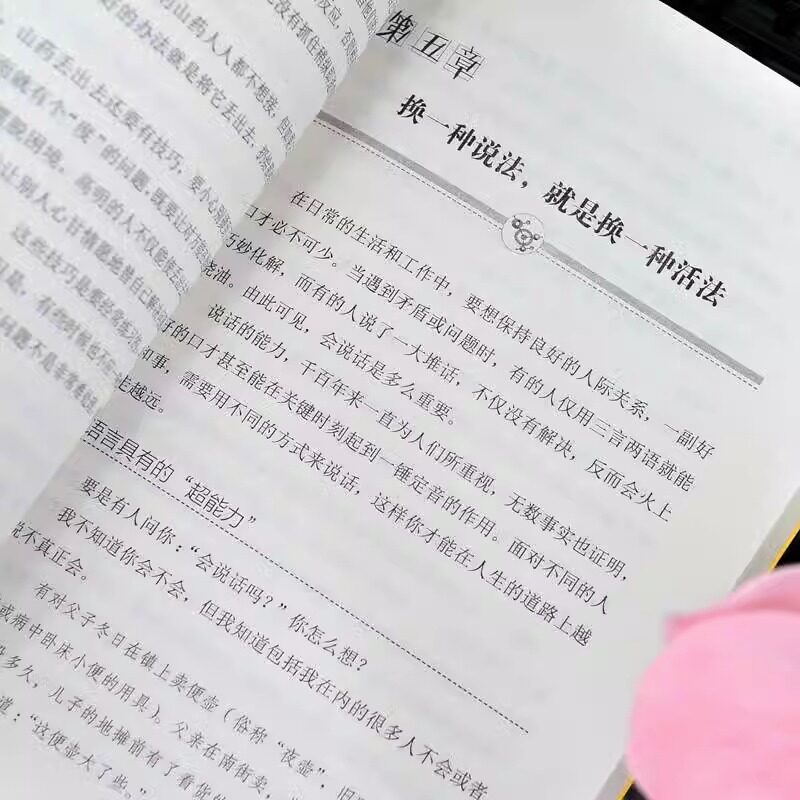 反应，
没有抓住
山药人人都不想接，但如
好的办法就是将它丢出去，
山药丢出去还要有技巧，要小心别
就有个“度”的问题，既要让对方
脱困境。高明的人不仅能够
让别人心甘情愿地替自己解
这些技巧是要经常练习
问题不是非常
第五章
换一种说法，就是换一种活法
在日常的生活和工作中，要想保持良好的人际关系，一副好
口才必不可少。当遇到矛盾或问题时，有的人仅用三言两语就能
巧妙化解，而有的人说了一大堆话，不仅没有解决，反而会火上
浇油。由此可见，会说话是多么重要。
说话的能力，千百年来一直为人们所重视，无数事实也证明，
好的口才甚至能在关键时刻起到一锤定音的作用。面对不同的人
和事，需要用不同的方式来说话，这样你才能在人生的道路上越
走越远。
语言具有的“超能力”
要是有人问你：“会说话吗？”你怎么想？
我不知道你会不会，但我知道包括我在内的很多人不会或者
说不真正会。
有对父子冬日在镇上卖便壶（俗称“夜壶”，旧
或病中卧床小便的用具）。父亲在南街卖，
没多久，儿子的地摊前有了看货的
道：“这便壶大了些。”